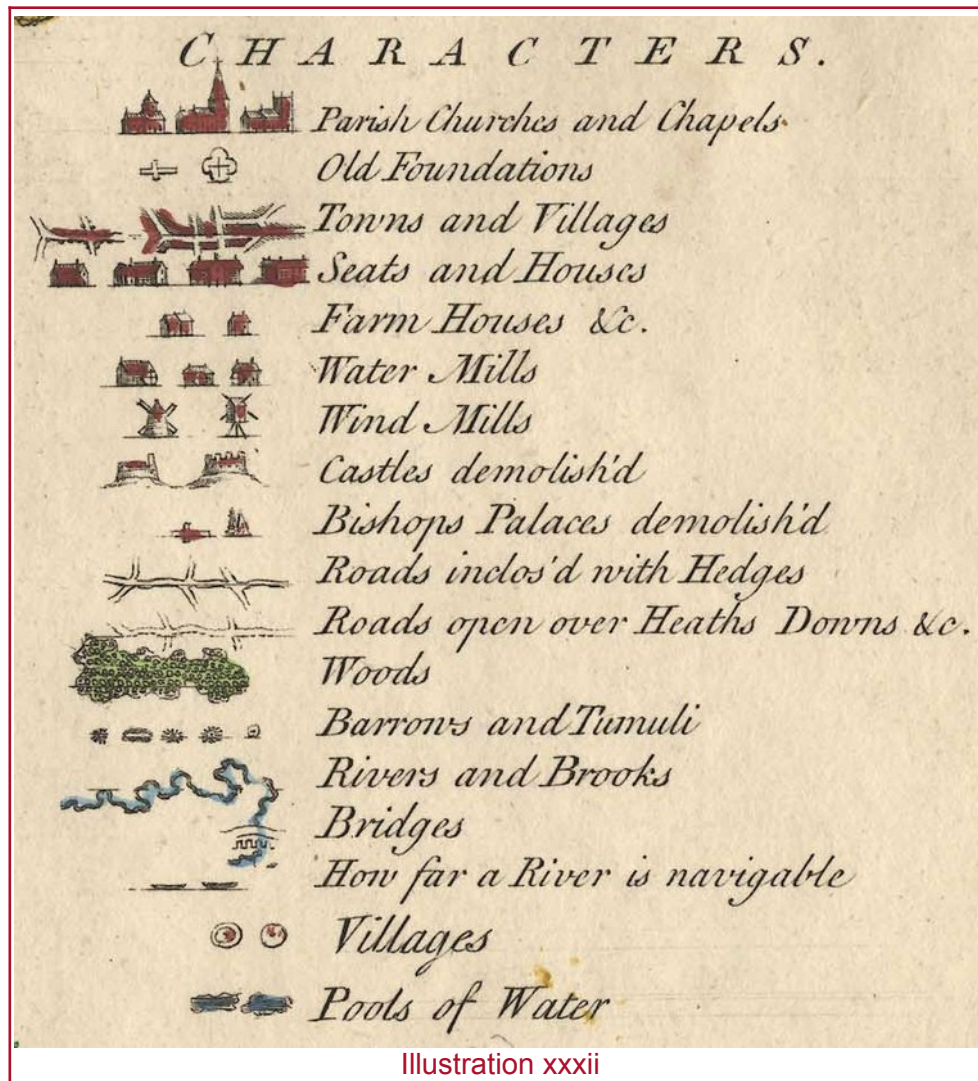 CHARACTERS.
Parish Churches and Chapels
Old Foundations
Towns and Villages
Seats and Houses
Farm Houses &c.
Water Mills
Wind Mills
Castles demolish'd
Bishops Palaces demolish'd
Roads inclos'd with Hedges
Roads open over Heaths Downs &c.
Woods
Barrows and Tumuli
Rivers and Brooks
Bridges
How far a River is navigable
Villages
Pools of Water
Illustration xxxii